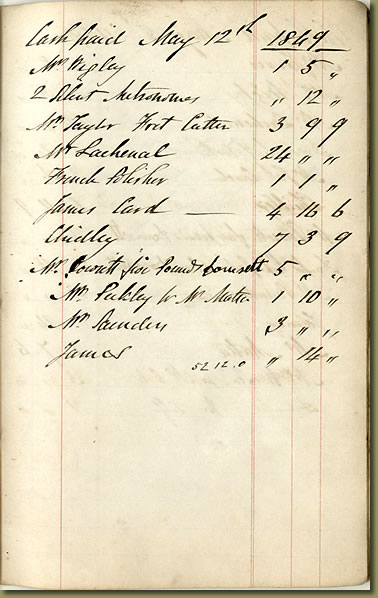 Cash paid May 12th 1849
Mr Pigley 1 5 "
2 Silent Metronomes " 12 "
Mr Taylor Fret Cutter 3 9 9
Mr Lachenal 24 " "
French Polisher 1 1 "
James Card — 4 16 6
Chidley 7 3 9
Mr Cowatt five Pounds 5 " "
Mr Pukley for Mr Matta 1 10 "
Mr Saunders 3 " "
James 52 12.0 " 14 "